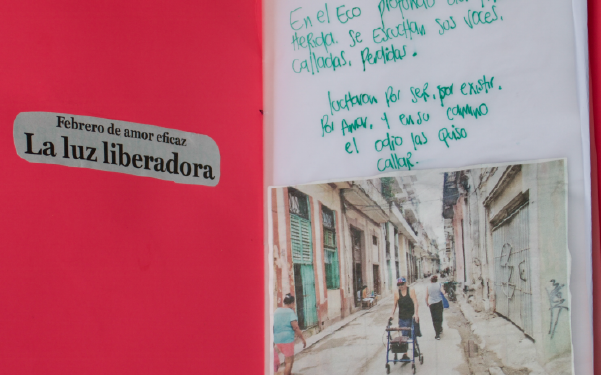 Febrero de amor eficaz
La luz liberadora
En el Eco profundo
Herida, se escuchan sus voces,
calladas, perdidas.
lucharon por ser, por existir,
Por Amar, y en su camino
el odio las quiso
callar.